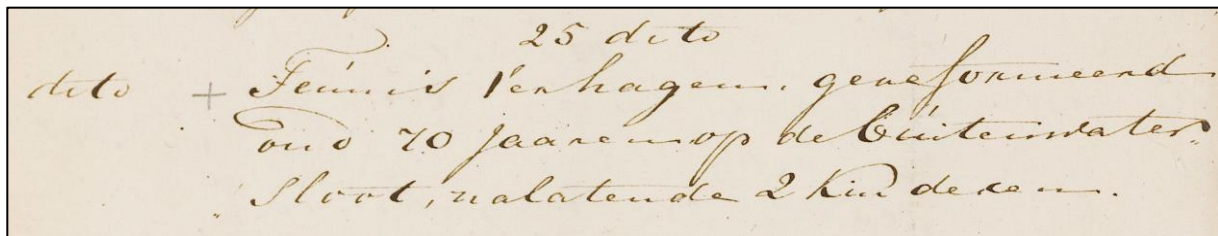 25 dito
dito + Teunis Verhagen, gereformeerd
oud 70 Jaaren op de Buitenwater„
Sloot, nalatende 2 Kinderen.